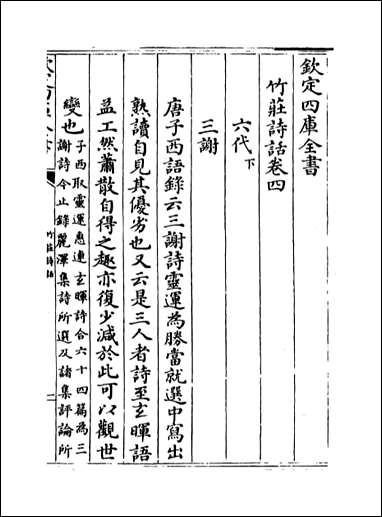 欽定四庫全書
竹莊詩話卷四
六代下
三謝
唐子西語錄云三謝詩靈運為勝當就選中寫出
熟讀自見其優劣也又云是三人者詩至玄暉語
益工然蕭散自得之趣亦復少減於此可以觀世
變也子西取靈運惠連玄暉詩合六十四篇為三
謝詩今止錄麗澤集詩所選及諸集評論所
竹莊詩話